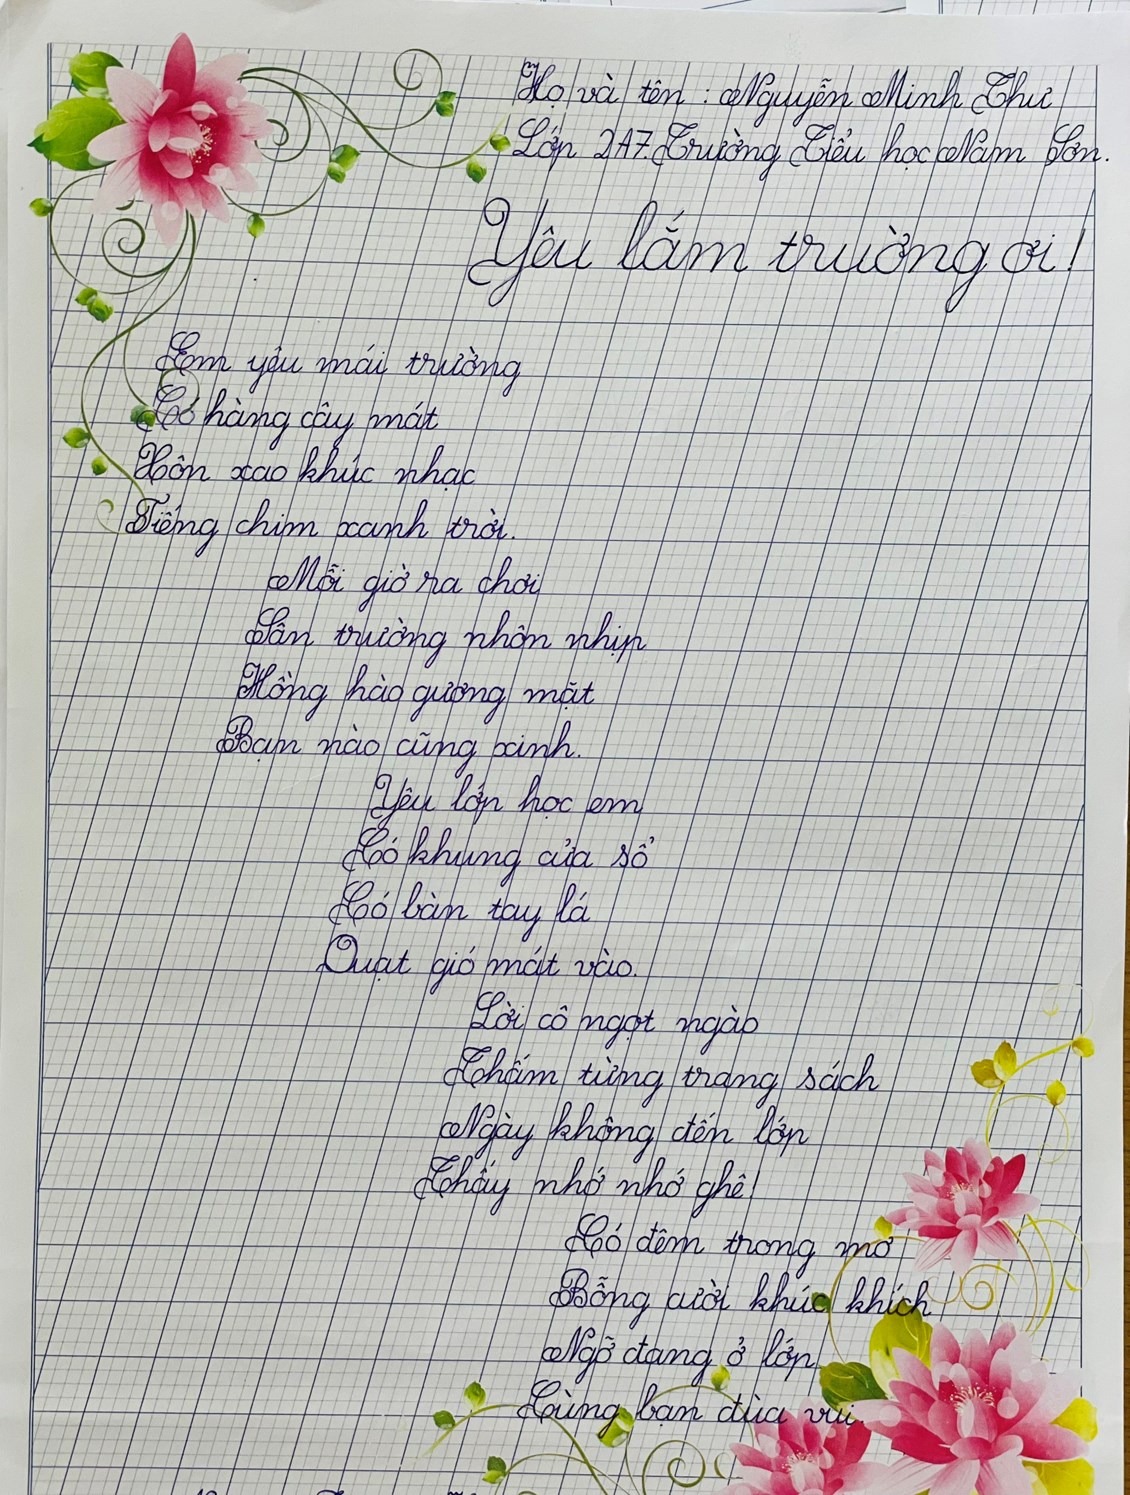 Họ và tên: Nguyễn Minh Thư
Lớp 2A7. Trường Tiểu học Nam Sơn.
Yêu lắm trường ơi!
Em yêu mái trường
Có hàng cây mát
Xôn xao khúc nhạc
Tiếng chim xanh trời.
Mỗi giờ ra chơi
Sân trường nhộn nhịp
Hồng hào gương mặt
Bạn nào cũng xinh.
Yêu lớp học em
Có khung cửa sổ
Có bàn tay lá
Quạt gió mát vào.
Lời cô ngọt ngào
Thấm từng trang sách
Ngày không đến lớp
Thấy nhớ nhớ ghê!
Có đêm trong mơ
Bỗng cười khúc khích
Ngỡ đang ở lớp
Cùng bạn đùa vui.